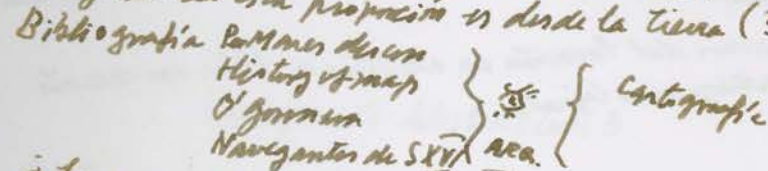 esta proporción es desde la tierra (
Bibliografía
History of map
O'Gorman
Navegantes de S XVI ARA.
Cartografía